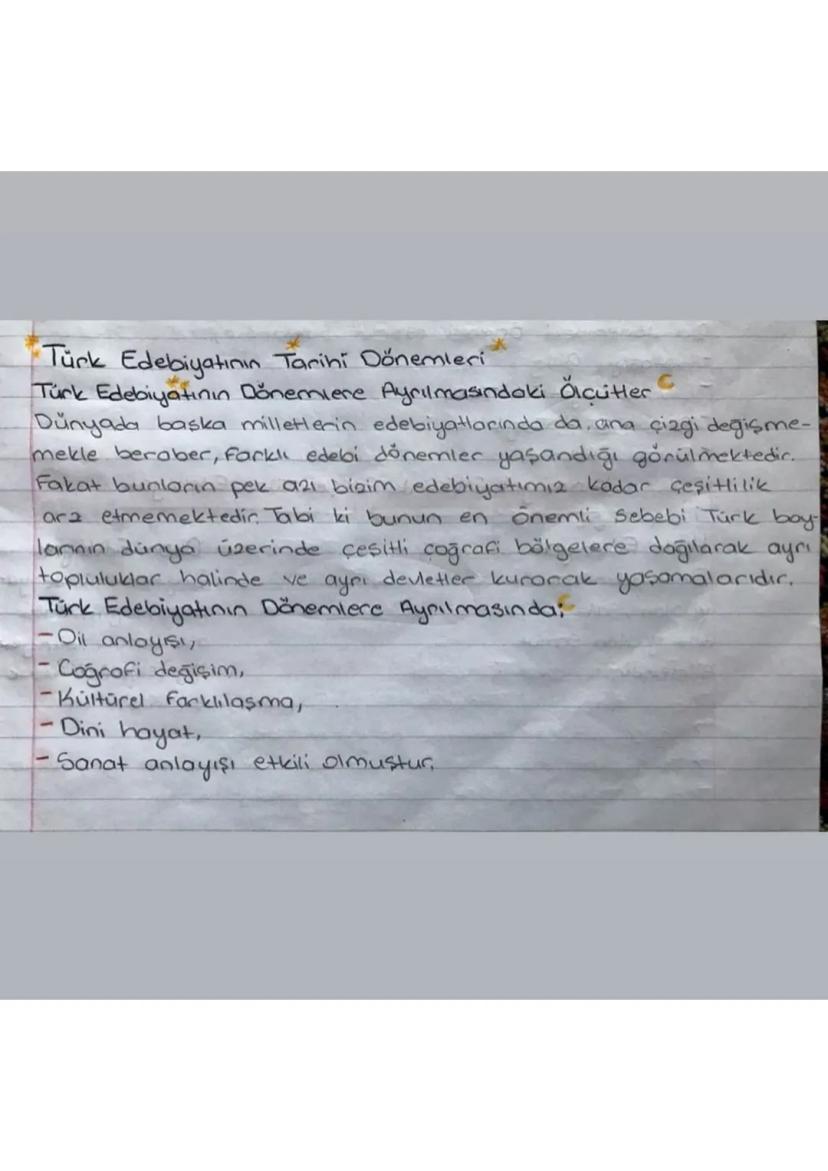 Türk Edebiyatının Tarihi Dönemleri
Türk Edebiyatının Dönemlere Ayrılmasındaki Ölçütler
Dünyada başka milletlerin edebiyatlarında da, ana çizgi değişme-
mekle beraber, farklı edebi dönemler yaşandığı görülmektedir.
Fakat bunların pek azı bizim edebiyatımız kadar çeşitlilik
arz etmemektedir. Tabi ki bunun en önemli sebebi Türk boy-
larının dünya üzerinde çeşitli coğrafi bölgelere dağılarak ayrı
topluluklar halinde ve ayrı devletler kurarak yaşamalarıdır.
Türk Edebiyatının Dönemlere Ayrılmasında;
- Dil anlayışı,
- Coğrafi değişim,
- Kültürel farklılaşma,
- Dini hayat,
- Sanat anlayışı etkili olmuştur.